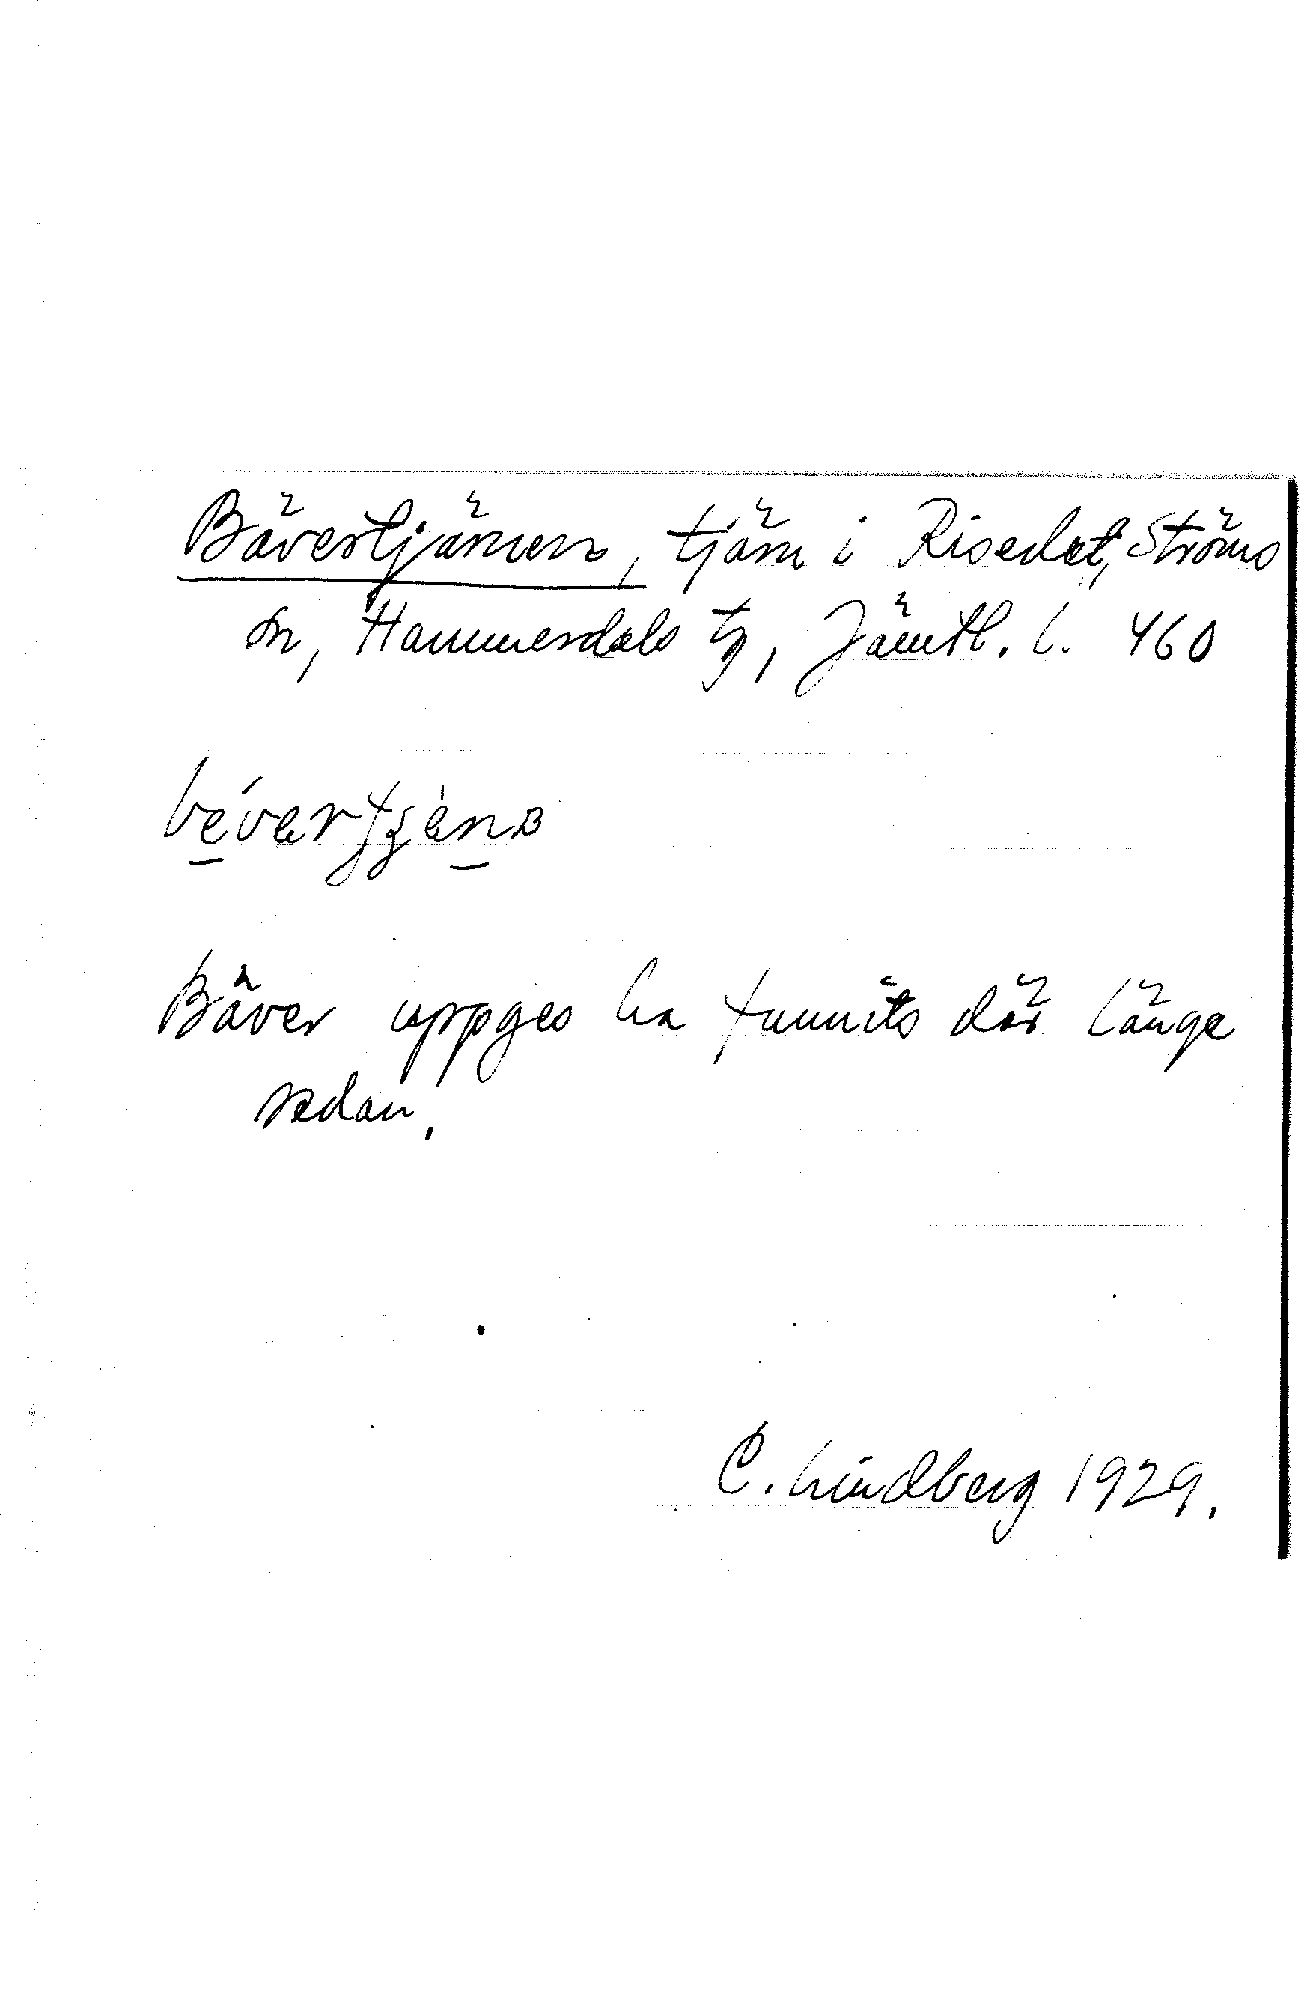 Bävertjärnen, tjärn i Risedet, Ströms
sn, Hammerdals tg, Jämtl. l. 460
Bäver uppges ha funnits där länge
sedan.
C. Lindberg 1929.